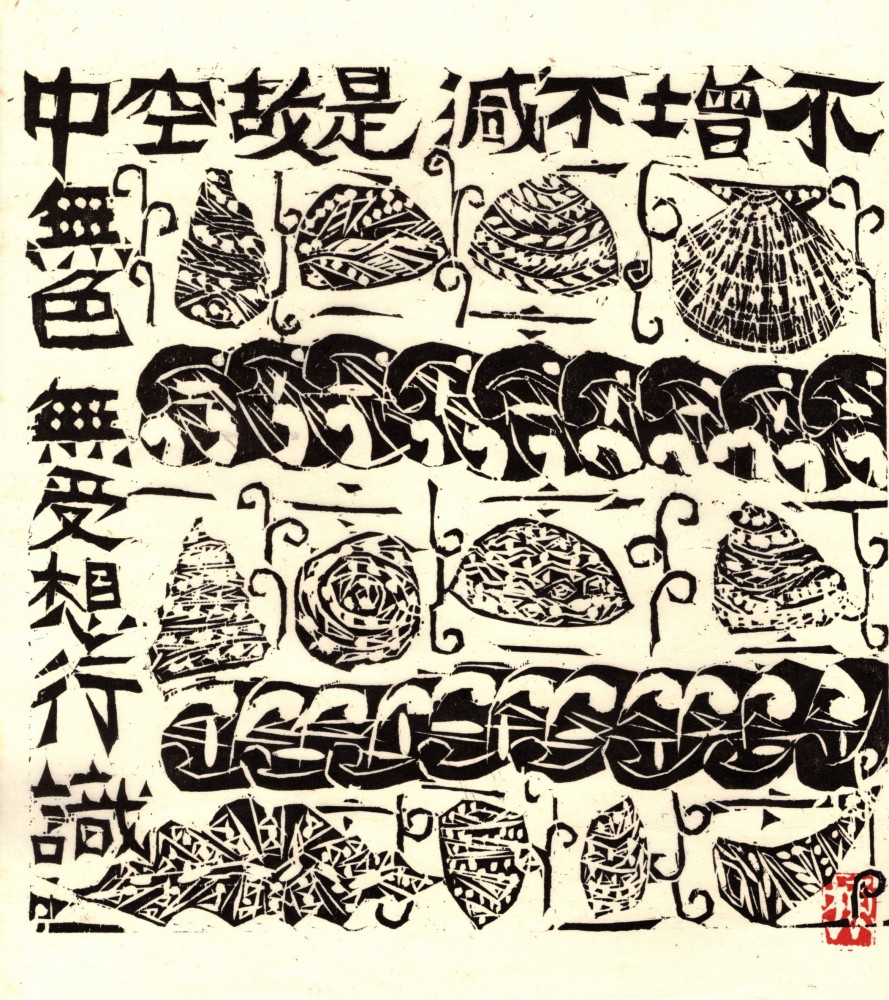 不增不減是故空中
無色無受想行識